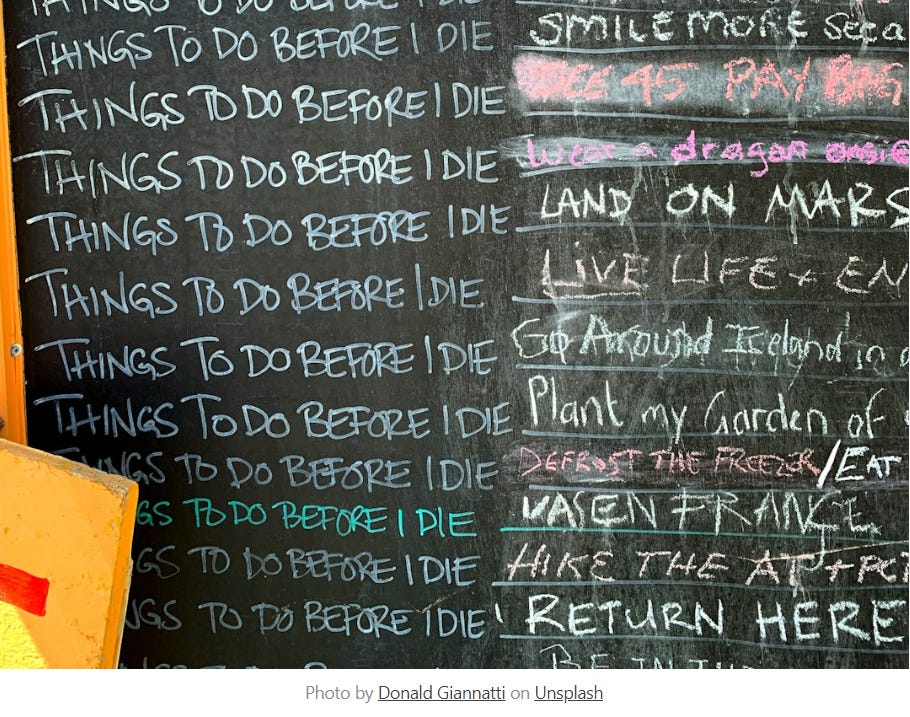 THINGS TO DO BEFORE I DIE
THINGS TO DO BEFORE I DIE SMILE MORE
THINGS TO DO BEFORE I DIE SEE 45 PAY BIG
THINGS TO DO BEFORE I DIE Wear a dragon onsie
THINGS TO DO BEFORE I DIE LAND ON MARS
THINGS TO DO BEFORE I DIE LIVE LIFE + EN
THINGS TO DO BEFORE I DIE Go Around Iceland in a
THINGS TO DO BEFORE I DIE Plant my Garden of
THINGS TO DO BEFORE I DIE DEFROST THE FREEZER/EAT
NGS TO DO BEFORE I DIE VASEN FRANCE
GS TO DO BEFORE I DIE HIKE THE AT + PCT
GS TO DO BEFORE I DIE RETURN HERE
NGS TO DO BEFORE I DIE BE IN
Photo by Donald Giannatti on Unsplash